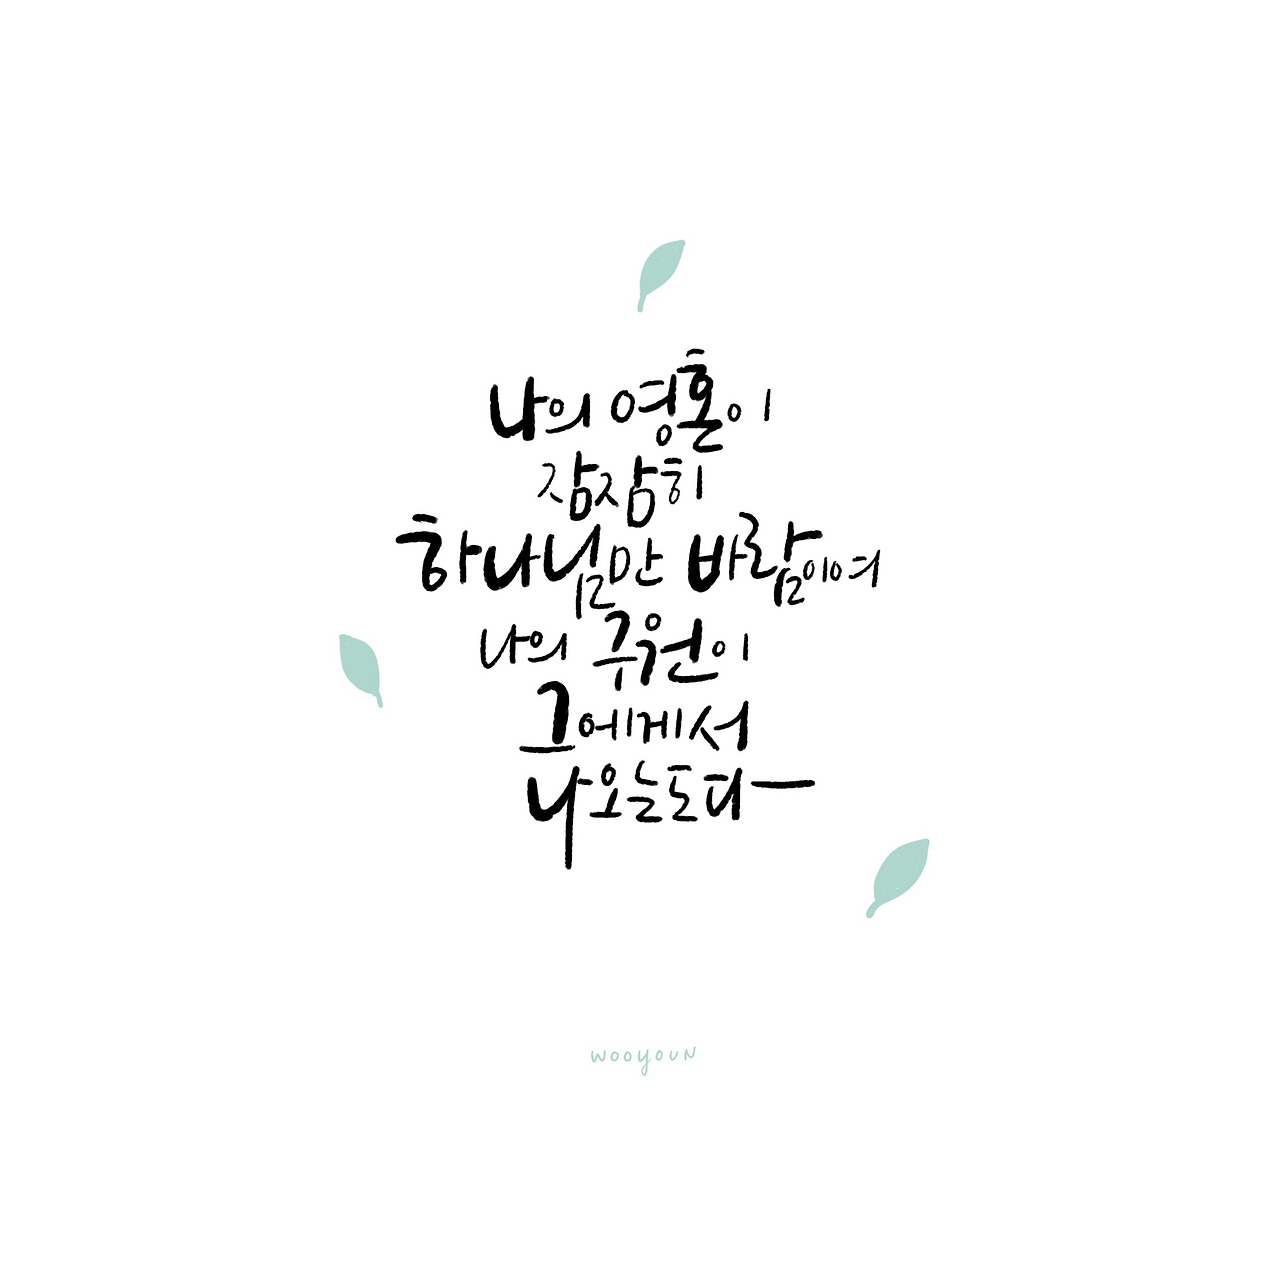 나의 영혼이
잠잠히
하나님만 바람이여
나의 구원이
그에게서
나오는도다
wooyoun